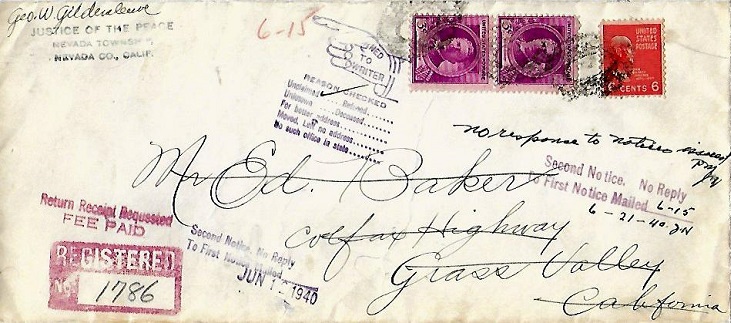 Geo. W. Gildersleeve
JUSTICE OF THE PEACE
NEVADA TOWNSHIP
NEVADA CO., CALIF.
6-15
TO
WRITER
REASON CHECKED
Unclaimed Refused
Unknown Deceased
For better address
Moved, Left no address
No such office in state
5¢
5¢
UNITED
STATES
POSTAGE
6 CENTS 6
no response to notices issued
Second Notice. No Reply
To First Notice Mailed 6-15
6-21-40
Mr Ed. Baker
Colfax Highway
Grass Valley
California
Return Receipt Requested
FEE PAID
REGISTERED
No. 1786
Second Notice No Reply
To First Notice Mailed
JUN 1 1940